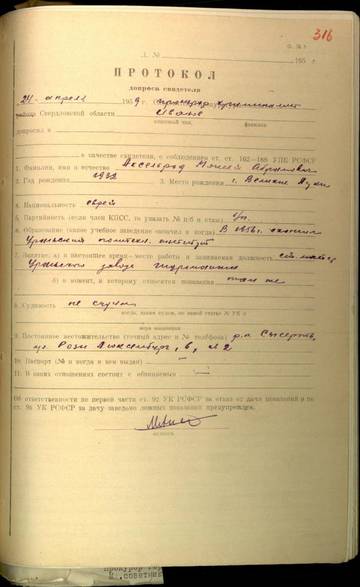 316
Л. №
195  г.
ПРОТОКОЛ
допроса свидетеля
24 апреля 1959 г. прокурор криминалист
Свердловской области Иванов
классный чин, фамилия
допросил в
в качестве свидетеля, с соблюдением ст. ст. 162–168 УПК РСФСР
1. Фамилия, имя и отчество Аксельрод Моисей Абрамович
2. Год рождения 1932 3. Место рождения г. Великие Луки
4. Национальность еврей
5. Партийность (если член КПСС, то указать № п/б и стаж) б/п
6. Образование (какое учебное заведение окончил и когда) В 1956 г. окончил
Уральский политехн. институт
7. Занятие: а) в настоящее время место работы и занимаемая должность
Уральского завода
б) в момент, к которому относятся показания там же
8. Судимость не судим
когда, каким судом, по какой статье УК и
мера наказания
9. Постоянное местожительство (точный адрес и № телефона) р.п. Сысерть,
ул. Розы Люксембург,
10. Паспорт (№ и когда и кем выдан) —
11. В каких отношениях состоит с обвиняемым —
Об ответственности по первой части ст. 92 УК РСФСР за отказ от дачи показаний и по
ст. 95 УК РСФСР за дачу заведомо ложных показаний предупрежден.
подпись